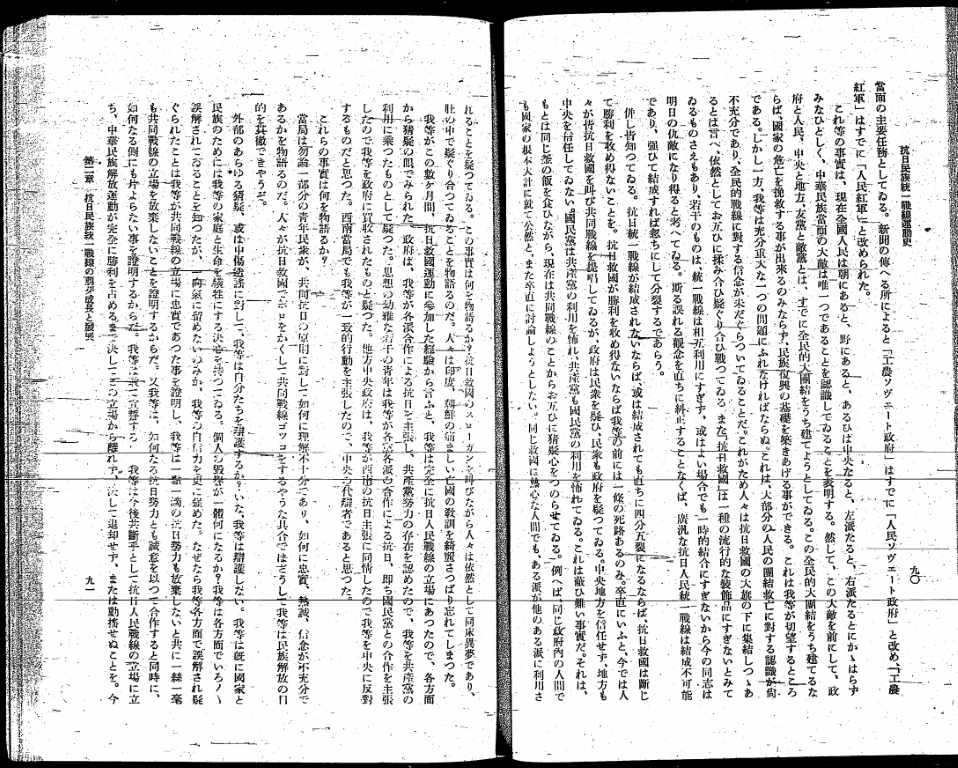 抗日民族統一戰線運動史
九〇
當面の主要任務としてゐる。新聞の傳へる所によると「工農ソヴェート政府」はすでに「人民ソヴェート政府」と改め、「工農
紅軍」はすでに「人民紅軍」と改められた。
これ等の事實は、現在全國人民は朝にあると、野にあると、あるひは中央たると、左派たると、右派たるとにかゝはらず
みなひとしく、中華民族當面の大敵は唯一つであることを認識してゐることを表明する。然して、この大敵を前にして、政
府と人民、中央と地方、友黨と敵黨とは、すでに全民的大團結をうち建てようとしてゐる。この全民的大團結をうち建てるな
らば、國家の危亡を挽救する事が出來るのみならず、民族復興の基礎を築きあげる事ができる。これは我等が切望するところ
である。しかし一方、我等は充分重大な一つの問題にふれなければならぬ。これは、大部分の人民の團結救亡に對する認識が尙
不充分であり、全民的戰線に對する信念が未だぐらついてゐることだ。これがため人々は抗日救國の大旗の下に集結しつゝあ
るとは言へ、依然としてお互ひに揉み合ひ疑ぐり合ひ戰つてゐる。また「抗日救國」は一種の流行的な裝飾品にすぎないとみて
ゐるものさえもあり、若干のものは、統一戰線は相互利用にすぎず、或はよい場合でも一時的結合にすぎないから今の同志は
明日の仇敵になり得ると考へてゐる。斯る誤れる觀念を直ちに糾正することなくば、廣汎な抗日人民統一戰線は結成不可能
であり、强ひて結成すれば忽ちにして分裂するであらう。
併し皆知つてゐる。抗日統一戰線が結成されないならば、或は結成されても直ちに四分五裂になるならば、抗日救國は斷じ
て勝利を收め得ないことを。抗日救國が勝利を收め得ないならば我等の前には一條の死路あるのみ。卒直にいふと、今では人
々が皆抗日救國を叫び共同戰線を提唱してゐるが、政府は民衆を疑ひ、民衆も政府を疑つてゐる。中央地方を信任せず、地方も
中央を信任してゐない。國民黨は共產黨の利用を怖れ、共產黨も國民黨の利用を怖れてゐる。これは蔽ひ難い事實だ。それは、
もとは同じ釜の飯を食ひながら、現在は共同戰線のことからお互ひに猜疑心をつのらせてゐる。例へば、同じ政府內の人間で
も國家の根本大計に就て公然と、また卒直に討論しようとしない。同じ救國に熱心な人間でも、ある派が他のある派に利用さ
れることを疑つてゐる。この事實は何を物語るか？抗日救國のスローガンを叫びながら人々は依然として同床異夢であり、
肚の中で疑ぐり合つてゐることを物語るのだ。人々は印度、朝鮮の痛ましい亡國の敎訓を綺麗さつぱり忘れてしまつた。
我等がこの數ヶ月間、抗日救國運動に參加した經驗から言ふと、我等は完全に抗日人民戰線の立場にあつたので、各方面
から猜疑の眼でみられた。政府は、我等が各派合作による抗日を主張し、共產黨勢力の存在を認めたので、我等を共產黨の
利用に乘つたものとして疑つた。思想の幼稚な若干の靑年は我等が各黨各派の合作による抗日、卽ち國民黨との合作を主張
したので我等を政府に買收されたものと疑つた。他方中央政府は、我等が西南の抗日主張に同情したので我等を中央に反對
するものだと思つた。西南當局でも我等が一致的行動を主張したので、中央の代辯者であると思つた。
これらの事實は何を物語るか？
當局は勿論一部分の靑年民衆が、共同抗日の原則に對して如何に理解不十分であり、如何に忠實、熱誠、信念が不充分で
あるかを物語るのだ。人々が抗日救國でお口をかくして共同戰線ゴッコをするやうな具合ではどうして我等は民族解放の目
的を貫徹できやうぞ。
外部のあらゆる猜疑、或は中傷造謠に對して、我等は自分たちを辯護するか？いな、我等は辯護しない。我等は旣に國家と
民族のためには我等の家庭と生命を犧牲にする決心を持つてゐる。個人の毀譽が一體何になるか？我等は各方面でいろ〱
誤解されてゐることを知つたが、一向意に留めないのみか、我等の自信力を更に强めた。なぜなら我等各方面で誤解され疑
ぐられたことは我等が共同戰線の立場に忠實であつた事を證明し、我等は一點一滴の抗日勢力も放棄しないと共に一絲一毫
も共同戰線の立場を放棄しないことを證明するからだ。又我等は、如何なる抗日勢力とも誠意を以つて合作すると同時に、
如何なる側にも片よらない事を證明するからだ。我等は敢て宣誓する――我等は今後共斷乎として抗日人民戰線の立場に立
ち、中華民族解放運動が完全に勝利を占めるまで決してこの立場から離れず、決して退却せず、または動搖せぬことを。今
第二章 抗日民族統一戰線の萌芽成長と發展
九一